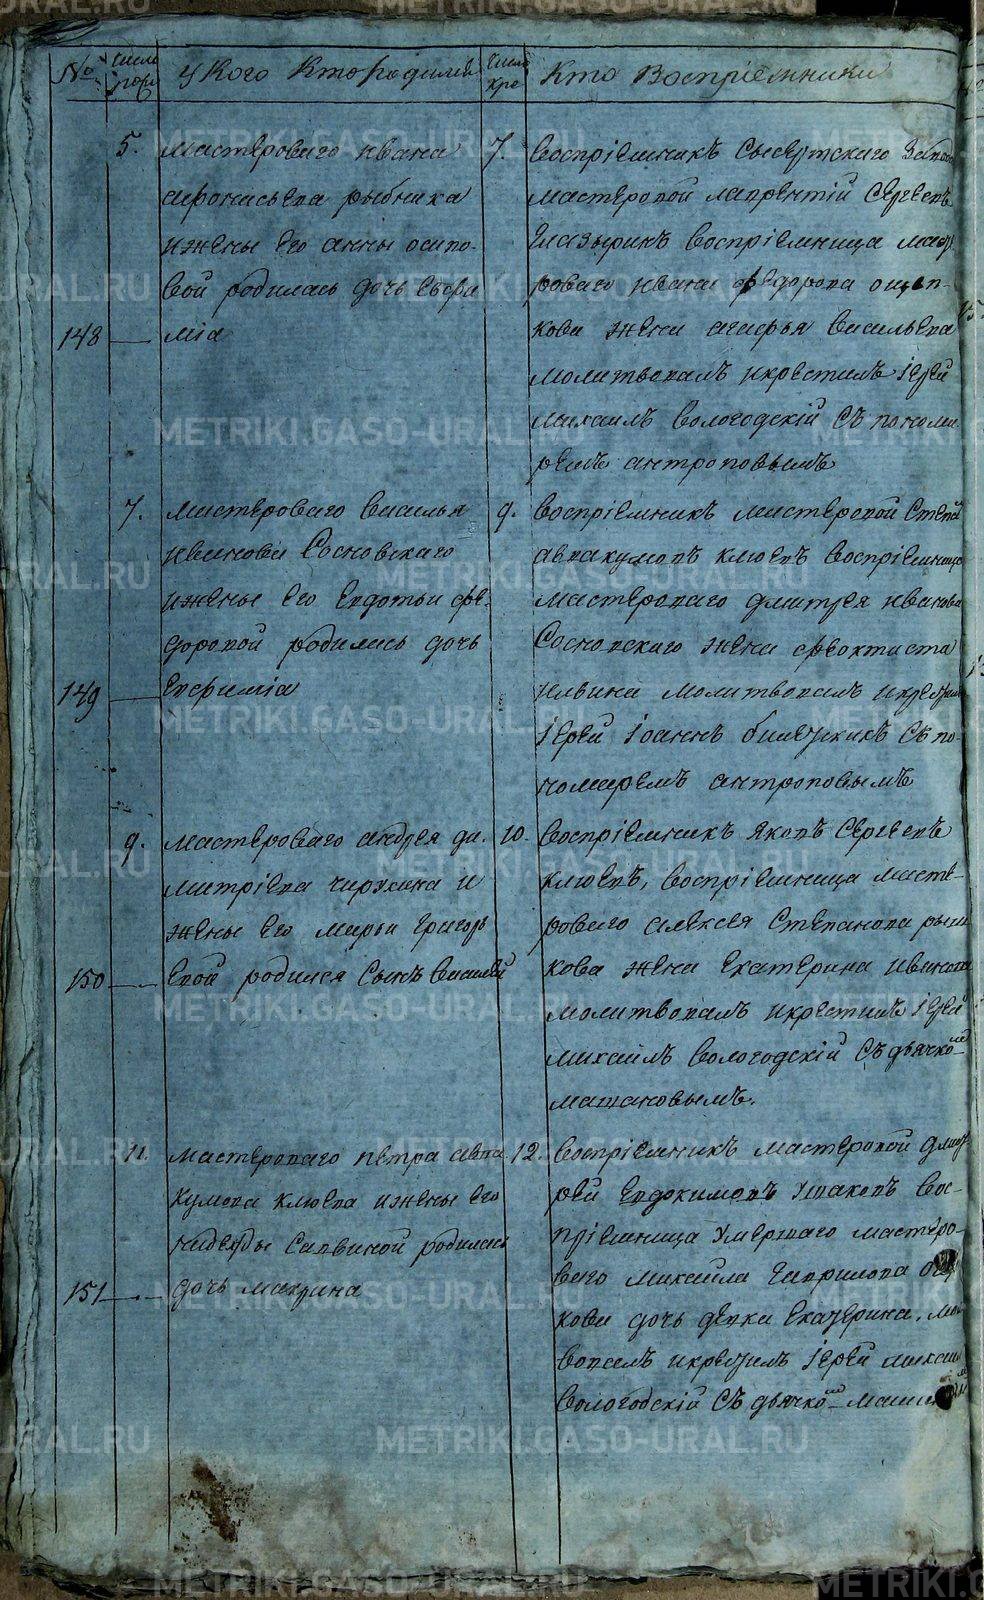 № числа рож у кого кто родился числа кре кто восприемники
5. мастероваго ивана
афонасьева рыбника
и жены его анны осипо-
вой родилась дочь евфи
148 мiа
7. воспрiемникъ сысертскаго завода
мастеровой лаврентiй сергеевъ
глазыринъ воспрiемница масте
роваго ивана федорова ощеп-
кова жена агафья васильева
молитвовалъ и крестилъ iерей
михаилъ вологодскiй съ понома
ремъ антроповымъ
7. мастероваго василья
иванова сосновскаго
и жены его евдотьи фе-
доровой родилась дочь
149 евфимiа
9. воспрiемникъ мастеровой степан
аввакумовъ клюевъ воспрiемница
мастероваго дмитрея иванова
сосновскаго жена феоктиста
ильина молитвовалъ и крестил
iерей iоаннъ съ по-
номаремъ антроповымъ
9. мастероваго андрея ди-
митрiева чирухина и
жены его марьи григорь
150 евой родился сынъ василей
10. воспрiемникъ яковъ сергеевъ
клюевъ, воспрiемница масте-
роваго алексея степанова
кова жена екатерина иванова
молитвовалъ и крестилъ iерей
михаилъ вологодскiй съ дьячком
матановымъ.
11. мастероваго петра авва
кумова клюева и жены его
надежды саввиной родилась
151 дочь макрина
12. воспрiемникъ мастеровой дмит
рей евдокимовъ ушаковъ вос-
прiемница умершаго мастеро-
ваго михаила гаврилова
кова дочь девка екатерина. мол
вовалъ и крестилъ iерей михаил
вологодскiй съ дьячком
METRIKI.GASO-URAL.RU